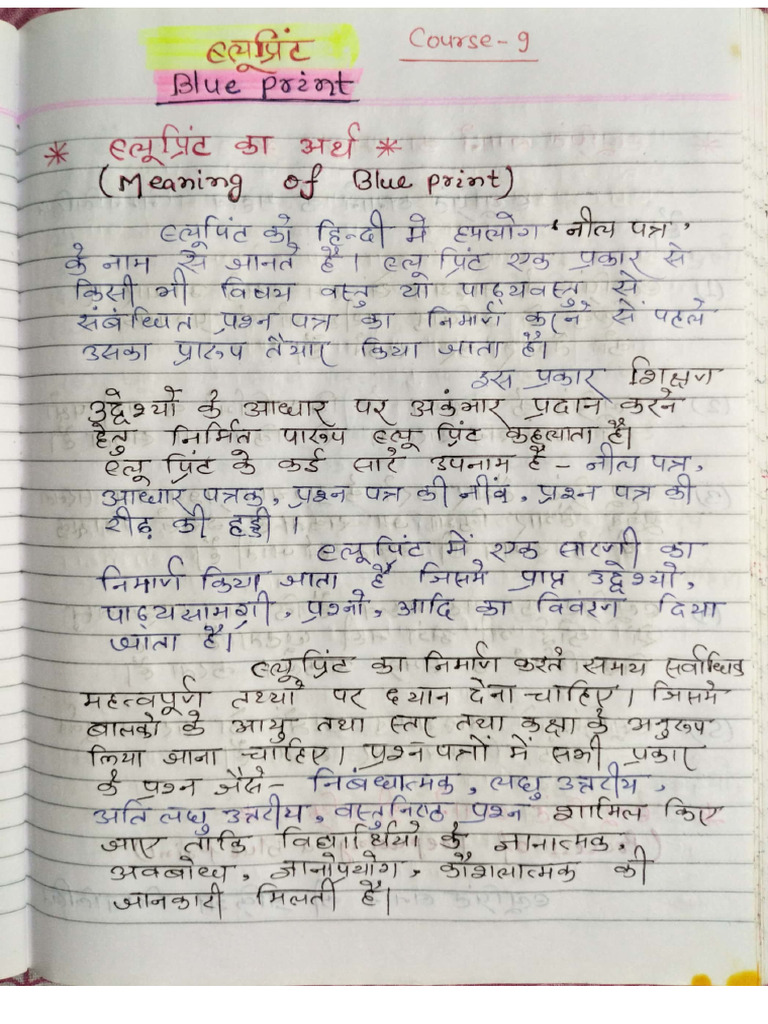 ब्लूप्रिंट
Course-9
Blue print
* ब्लूप्रिंट का अर्थ *
(Meaning of Blue print)
ब्लूप्रिंट को हिन्दी में उपयोग 'नील पत्र'
के नाम से जानते है। ब्लू प्रिंट एक प्रकार से
किसी भी विषय वस्तु या पाठ्यवस्तु से
संबंधित प्रश्न पत्र का निमार्ण करने से पहले
उसका प्रारूप तैयार किया जाता है।
इस प्रकार शिक्षण
उद्देश्यों के आधार पर अंकभार प्रदान करने
हेतु निर्मित पारूप ब्लू प्रिंट कहलाता है।
ब्लू प्रिंट के कई सारे उपनाम है - नील पत्र,
आधार पत्रक, प्रश्न पत्र की नींव, प्रश्न पत्र की
रीढ़ की हड्डी।
ब्लूप्रिंट में एक सारणी का
निमार्ण किया जाता है जिसमे प्राप्त उद्देश्यो,
पाठ्यसामग्री, प्रश्नो, आदि का विवरण दिया
जाता है।
ब्लूप्रिंट का निमार्ण करते समय सर्वाधिक
महत्वपूर्ण तथ्यों पर ध्यान देना चाहिए। जिसमे
बालको के आयु तथा स्तर तथा कक्षा के अनुरूप
लिया जाना चाहिए। प्रश्न पत्रों में सभी प्रकार
के प्रश्न जैसे- निबंधात्मक, लघु उत्तरीय,
अति लघु उत्तरीय, वस्तुनिष्ठ प्रश्न शामिल किए
जाए ताकि विद्यार्थियो के ज्ञानात्मक,
अवबोध, ज्ञानोपयोग, कौशलात्मक की
जानकारी मिलती है।